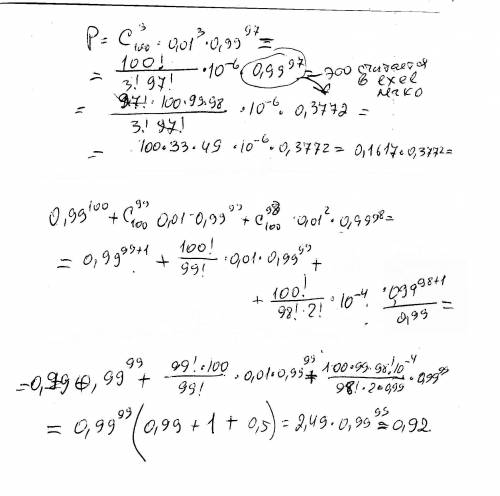 P = C³₁₀₀ · 0,01³ · 0,99⁹⁷ =
= 100! / (3! 97!) · 10⁻⁶ · 0,99⁹⁷ – это считается в exel
= 97! · 100 · 99 · 98 / (3! 97!) · 10⁻⁶ · 0,3772 =
= 100 · 33 · 49 · 10⁻⁶ · 0,3772 = 0,1617 · 0,3772 =
0,99¹⁰⁰ + C⁹⁹₁₀₀ 0,01 · 0,99⁹⁹ + C⁹⁸₁₀₀ · 0,01² · 0,99⁹⁸ =
= 0,99⁹⁹⁺¹ + 100! / 99! · 0,01 · 0,99⁹⁹ +
+ 100! / (98! · 2!) · 10⁻⁴ · 0,99⁹⁸⁺¹ / 0,99 =
= 0,99 · 0,99⁹⁹ + 99! · 100 / 99! · 0,01 · 0,99⁹⁹ + 100 · 99 · 98! · 10⁻⁴ / (98! · 2 · 0,99) · 0,99⁹⁹
= 0,99⁹⁹ (0,99 + 1 + 0,5) = 2,49 · 0,99⁹⁹ = 0,92